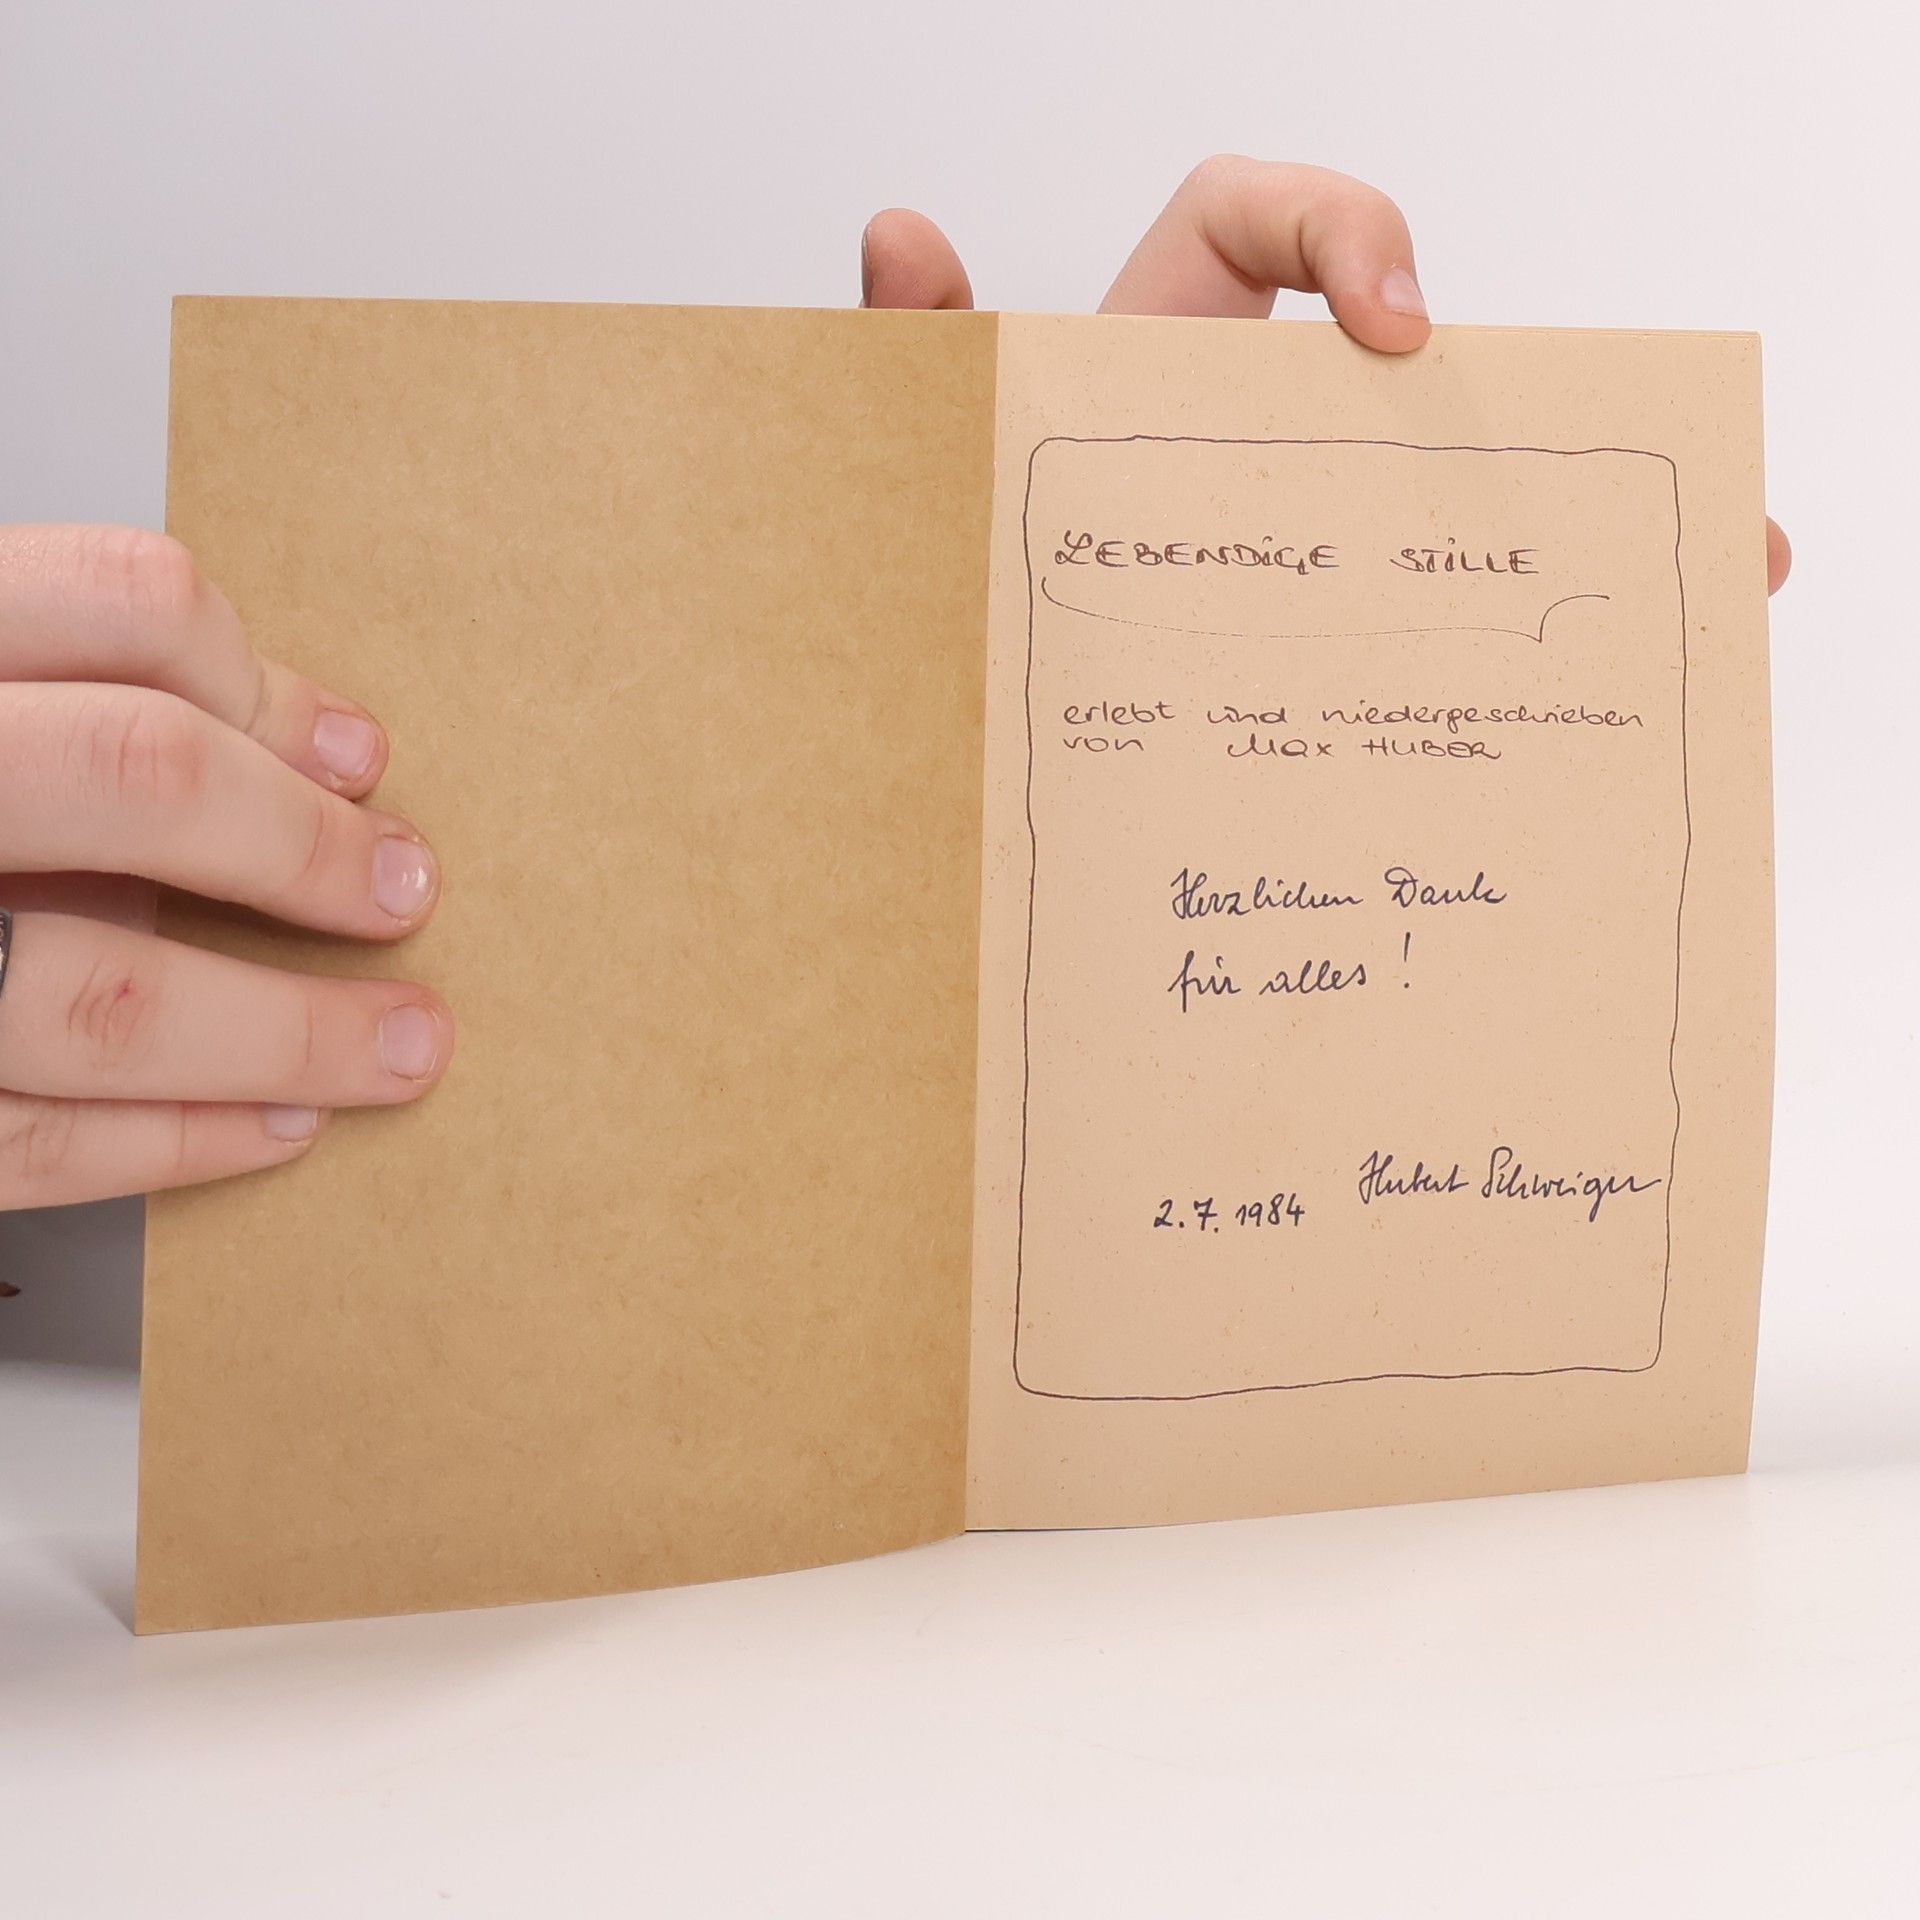 LEBENDIGE STILLE
erlebt und niedergeschrieben
von Max HUBER
Herzlichen Dank
für alles!
Hubert Schweiger
2.7.1984